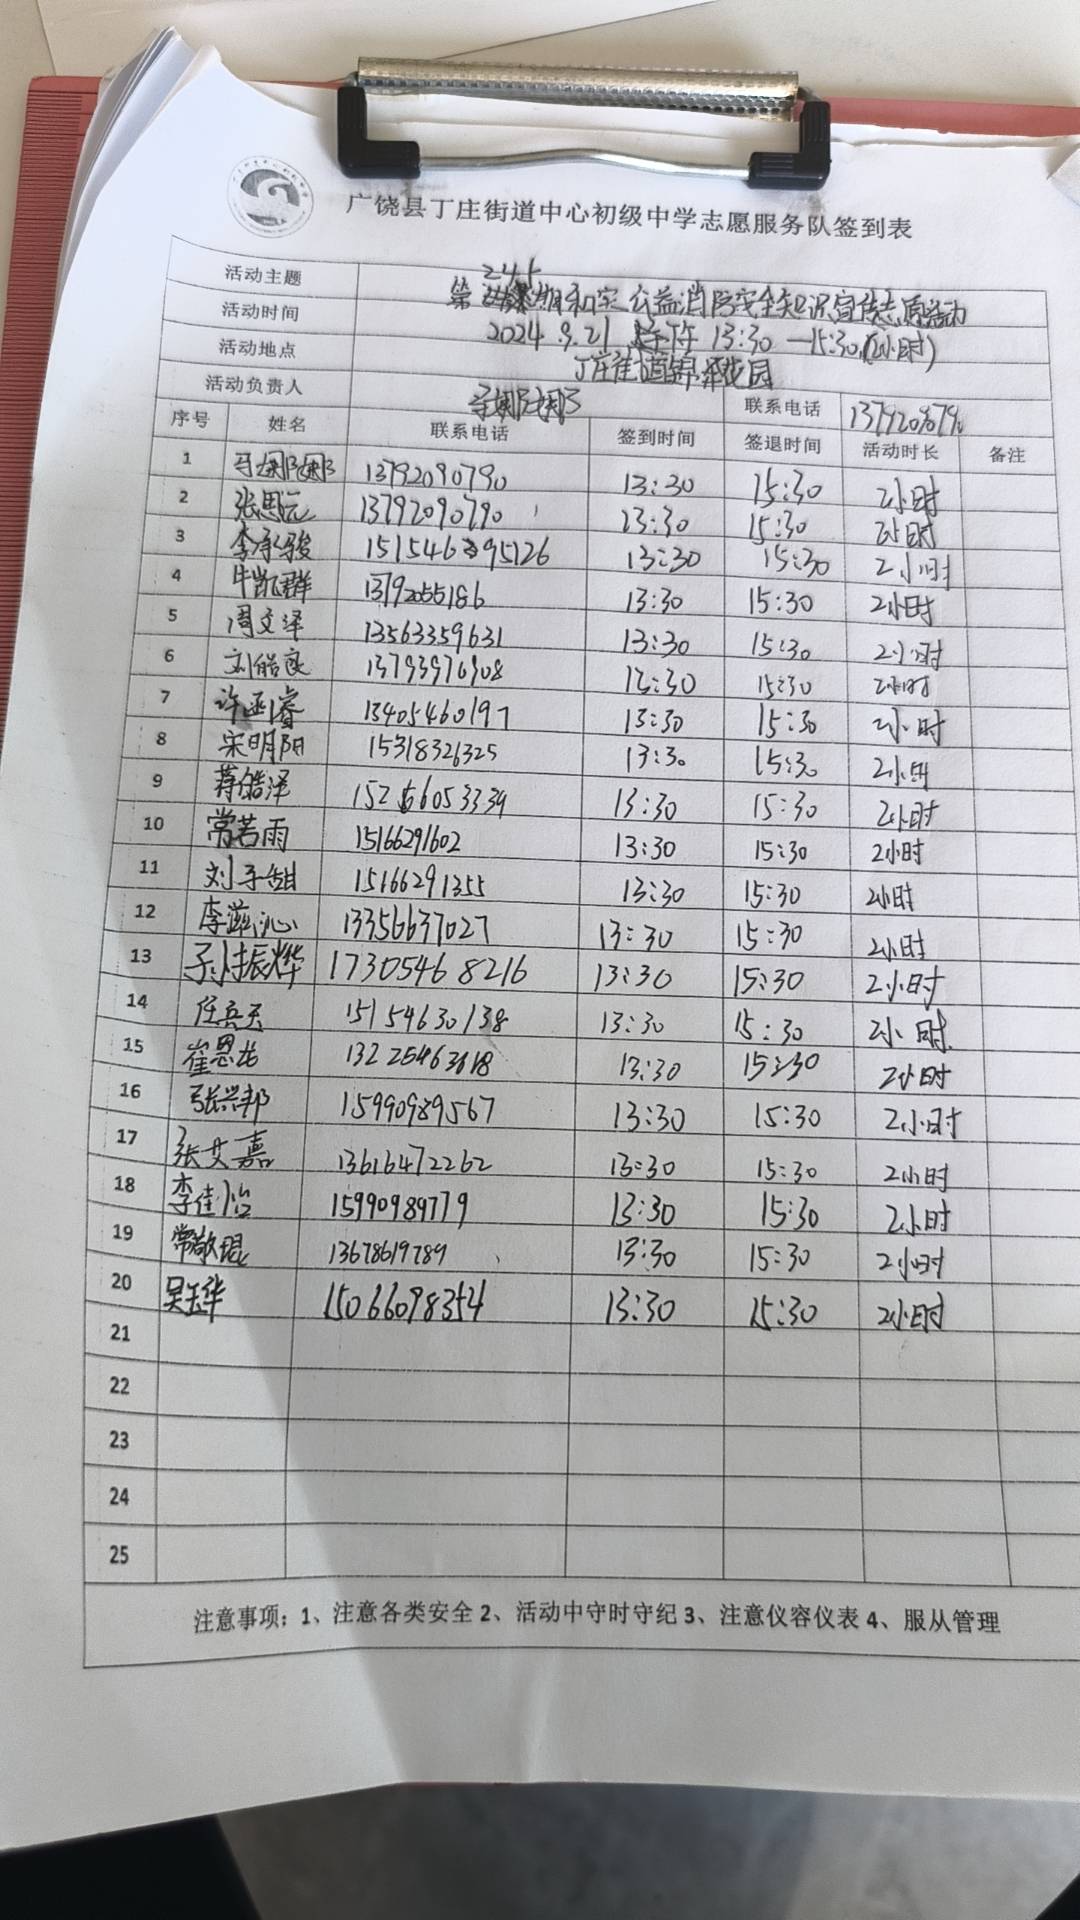 广饶县丁庄街道中心初级中学志愿服务队签到表
活动主题 第245期和宗公益消防安全知识宣传志愿活动
活动时间 2024.9.21 下午 13:30—15:30(2小时)
活动地点 丁庄街道锦泽花园
活动负责人 马娜娜 联系电话 13792090790
序号 姓名 联系电话 签到时间 签退时间 活动时长 备注
1 马娜娜 13792090790 13:30 15:30 2小时
2 张思远 13792090790 13:30 15:30 2小时
3 李承骏 151546395126 13:30 15:30 2小时
4 牛凯群 13792055186 13:30 15:30 2小时
5 周文泽 13563359631 13:30 15:30 2小时
6 刘皓良 13793976908 13:30 15:30 2小时
7 许函睿 13405460197 13:30 15:30 2小时
8 宋明阳 15318321325 13:30 15:30 2小时
9 蒋皓泽 15266053339 13:30 15:30 2小时
10 常若雨 15166291602 13:30 15:30 2小时
11 刘子钰 15166291355 13:30 15:30 2小时
12 李滋沁 13356637027 13:30 15:30 2小时
13 孙振烨 17305468216 13:30 15:30 2小时
14 任兵天 15154630138 13:30 15:30 2小时
15 崔恩龙 13225463618 13:30 15:30 2小时
16 张兴邦 15990989567 13:30 15:30 2小时
17 张艾嘉 13616472262 13:30 15:30 2小时
18 李佳怡 15990989779 13:30 15:30 2小时
19 常敬琨 13678619789 13:30 15:30 2小时
20 吴玉华 15066098354 13:30 15:30 2小时
21
22
23
24
25
注意事项：1、注意各类安全 2、活动中守时守纪 3、注意仪容仪表 4、服从管理